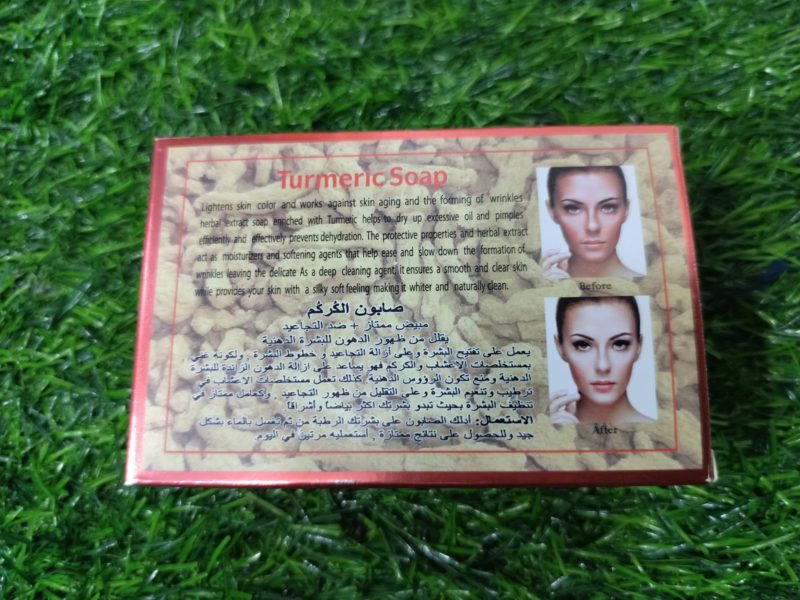 Turmeric Soap
Lightens skin color and works against skin aging and the forming of wrinkles
herbal extract soap enriched with Turmeric helps to dry up excessive oil and pimples
efficiently and effectively prevents dehydration. The protective properties and herbal extract
act as moisturizers and softening agents that help ease and slow down the formation of
wrinkles leaving the delicate As a deep cleaning agent, it ensures a smooth and clear skin
while provides your skin with a silky soft feeling making it whiter and naturally clean.
صابون الكُركُم
مبيض ممتاز + ضد التجاعيد
يقلل من ظهور الدهون للبشرة الدهنية
يعمل على تفتيح البشرة وعلى أزالة التجاعيد و خطوط البشرة , ولكونه غني
بمستخلصات الاعشاب والكركم فهو يساعد على ازالة الدهون الزائدة للبشرة
الدهنية ومنع تكون الرؤوس الدهنية. كذلك تعمل مستخلصات الاعشاب في
ترطيب وتنعيم البشرة و على التقليل من ظهور التجاعيد , وكعامل ممتاز في
تنظيف البشرة بحيث تبدو بشرتك اكثر بياضاً وأشراقاً
الاستعمال: أدلك الصابون على بشرتك الرطبة من ثم تغسل بالماء بشكل
جيد وللحصول على نتائج ممتازة , أستعمليه مرتين في اليوم.
Before
After